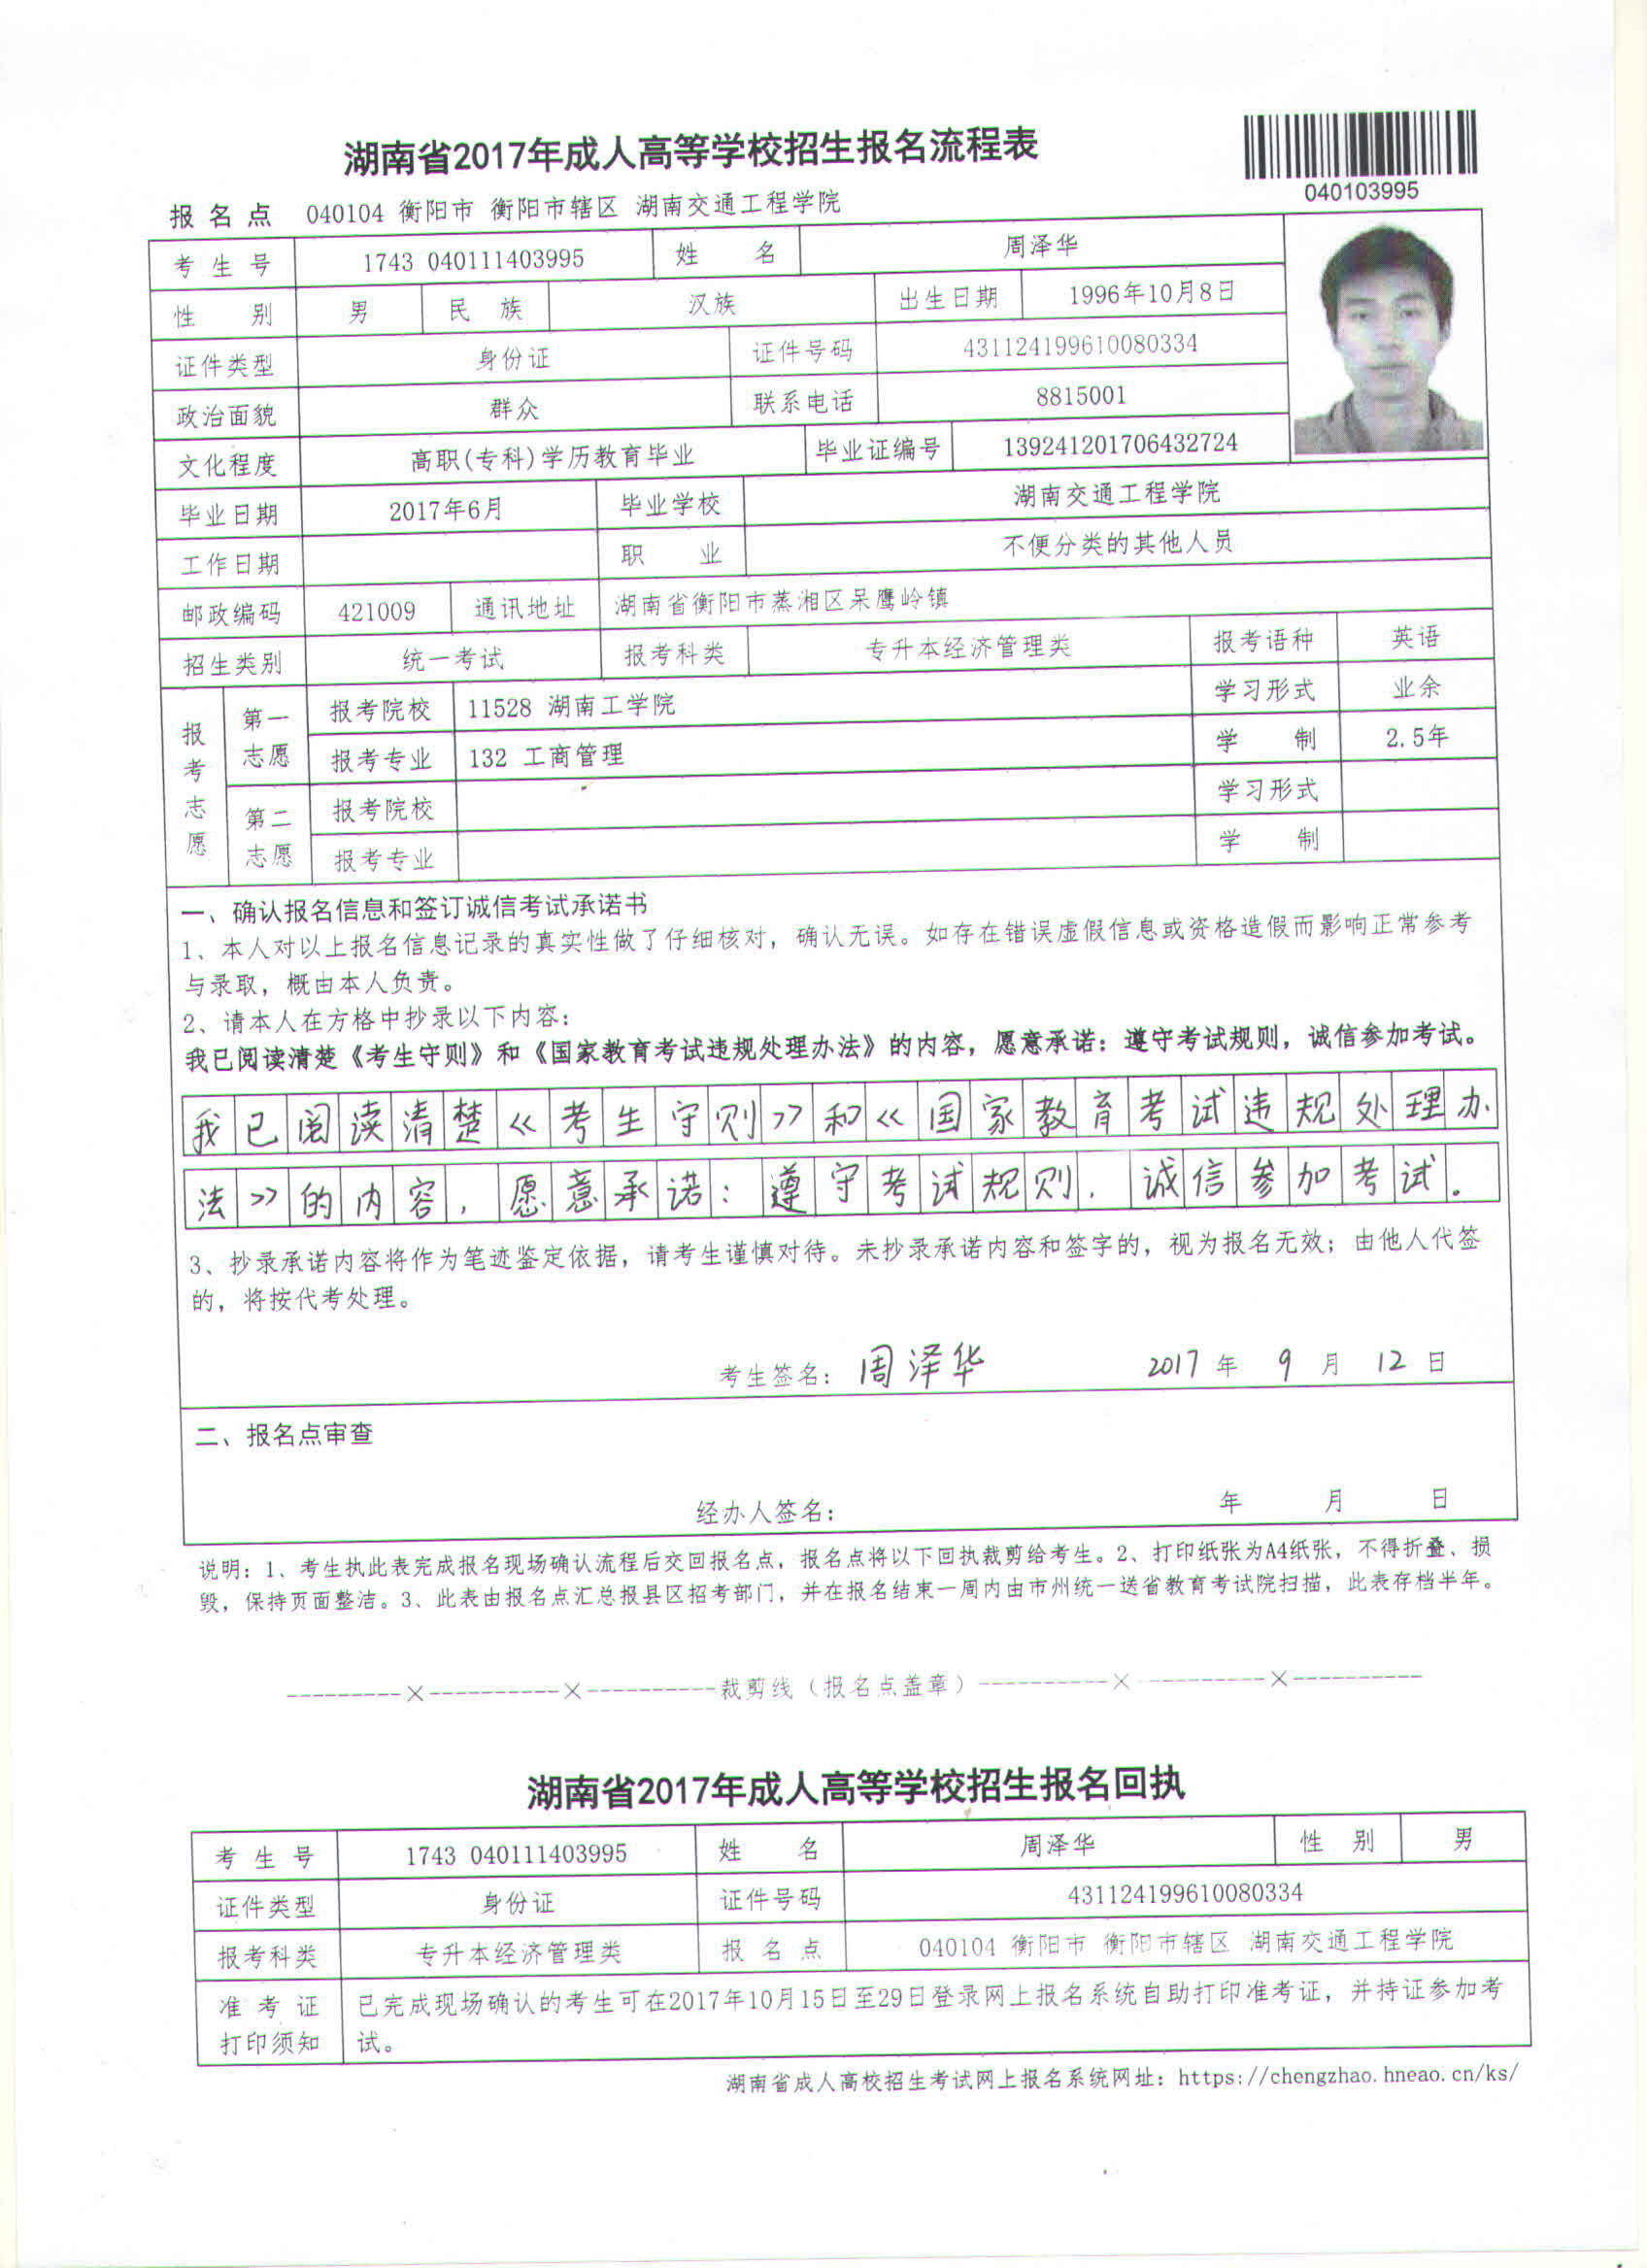 湖南省2017年成人高等学校招生报名流程表
040103995
报 名 点 040104 衡阳市 衡阳市辖区 湖南交通工程学院
考 生 号 1743 040111403995 姓 名 周泽华
性 别 男 民 族 汉族 出生日期 1996年10月8日
证件类型 身份证 证件号码 431124199610080334
政治面貌 群众 联系电话 8815001
文化程度 高职(专科)学历教育毕业 毕业证编号 139241201706432724
毕业日期 2017年6月 毕业学校 湖南交通工程学院
工作日期 职 业 不便分类的其他人员
邮政编码 421009 通讯地址 湖南省衡阳市蒸湘区呆鹰岭镇
招生类别 统一考试 报考科类 专升本经济管理类 报考语种 英语
报考志愿 第一志愿 报考院校 11528 湖南工学院 学习形式 业余
报考专业 132 工商管理 学 制 2.5年
第二志愿 报考院校 学习形式
报考专业 学 制
一、确认报名信息和签订诚信考试承诺书
1、本人对以上报名信息记录的真实性做了仔细核对，确认无误。如存在错误虚假信息或资格造假而影响正常参考
与录取，概由本人负责。
2、请本人在方格中抄录以下内容：
我已阅读清楚《考生守则》和《国家教育考试违规处理办法》的内容，愿意承诺：遵守考试规则，诚信参加考试。
我已阅读清楚《考生守则》和《国家教育考试违规处理办
法》的内容，愿意承诺：遵守考试规则，诚信参加考试。
3、抄录承诺内容将作为笔迹鉴定依据，请考生谨慎对待。未抄录承诺内容和签字的，视为报名无效；由他人代签
的，将按代考处理。
考生签名：周泽华 2017 年 9 月 12 日
二、报名点审查
经办人签名： 年 月 日
说明：1、考生执此表完成报名现场确认流程后交回报名点，报名点将以下回执裁剪给考生。2、打印纸张为A4纸张，不得折叠、损
毁，保持页面整洁。3、此表由报名点汇总报县区招考部门，并在报名结束一周内由市州统一送省教育考试院扫描，此表存档半年。
---------×----------×----------裁剪线（报名点盖章）----------×----------×----------
湖南省2017年成人高等学校招生报名回执
考 生 号 1743 040111403995 姓 名 周泽华 性 别 男
证件类型 身份证 证件号码 431124199610080334
报考科类 专升本经济管理类 报 名 点 040104 衡阳市 衡阳市辖区 湖南交通工程学院
准 考 证 打印须知 已完成现场确认的考生可在2017年10月15日至29日登录网上报名系统自助打印准考证，并持证参加考
试。
湖南省成人高校招生考试网上报名系统网址：https://chengzhao.hneao.cn/ks/